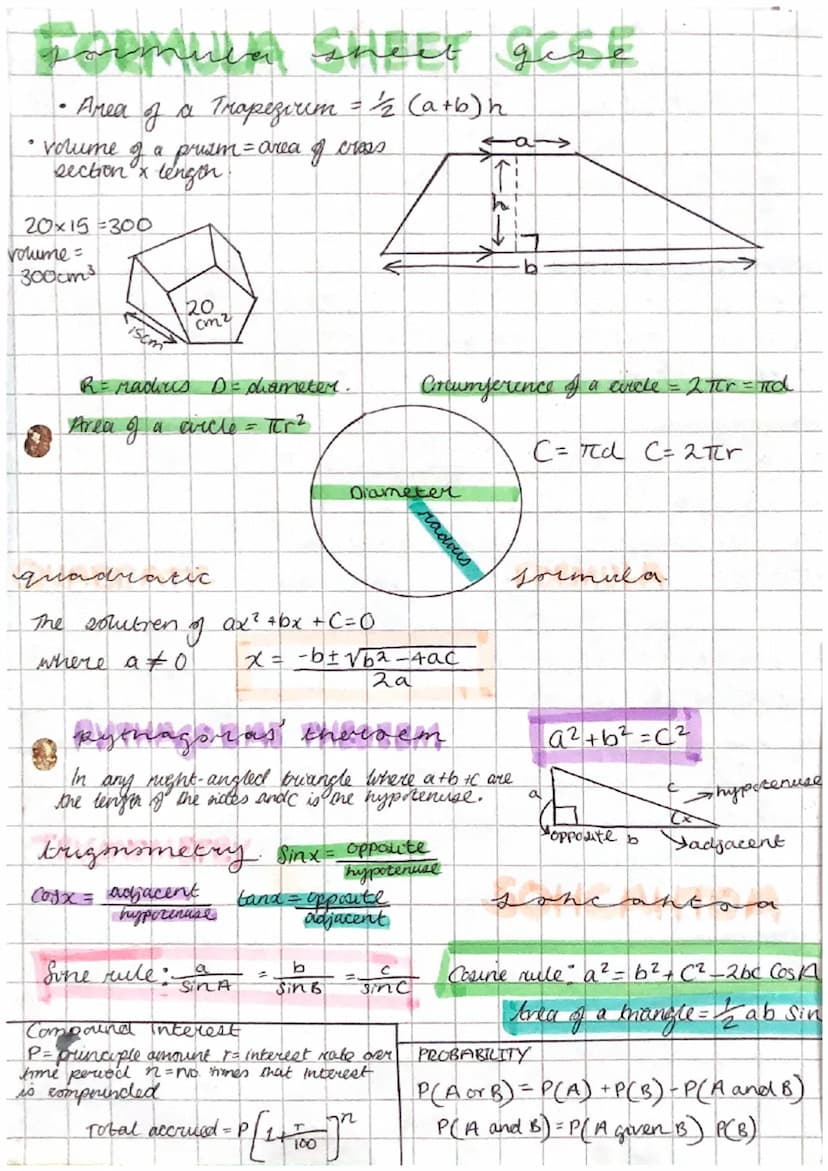 FORMULA SHEET gcse
formula sheet
• Area of a Trapezium = ½ (a+b)h
• volume of a prism = area of cross
section × length.
a
h
b
20×15 =300
volume =
300cm³
20
cm²
15cm
R = radius D = diameter.
Circumference of a circle = 2πr = πd
Area of a circle = πr²
C = πd C = 2πr
Diameter
radius
quadratic formula
The solution of ax² + bx + C = 0
where a ≠ 0 x = -b ± √b² - 4ac / 2a
PYTHAGORAS' THEOREM
pythagoras' theroem
a² + b² = c²
In any right-angled triangle where a+b+c are
the length of the sides and c is the hypotenuse.
a
c
hypotenuse
x
opposite b
adjacent
trigonometry. Sinx = opposite / hypotenuse
Cosx = adjacent / hypotenuse tanx = opposite / adjacent
sohcahtoa
Sine rule: a / sin A = b / sin B = c / sin C
Cosine rule: a² = b² + C² - 2bc Cos A
Area of a triangle = ½ ab Sin
Compound Interest
P = principle amount r = interest rate over
time period n = no. times that interest
is compounded
Total accrued = P [1 + r/100]ⁿ
PROBABILITY
P(A or B) = P(A) + P(B) - P(A and B)
P(A and B) = P(A given B) P(B)